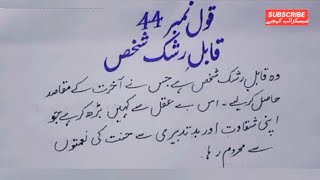 SUBSCRIBE
سبسکرائب کیجیے
قول نمبر 44
قابلِ رشک شخص
وہ قابلِ رشک شخص ہے جس نے آخرت کے مقاصد
حاصل کر لیے ۔ اس بے عقل سے کہیں بڑھ کر ہے جو
اپنی شقاوت اور بد تدبیری سے جنت کی نعمتوں
سے محروم رہا ۔